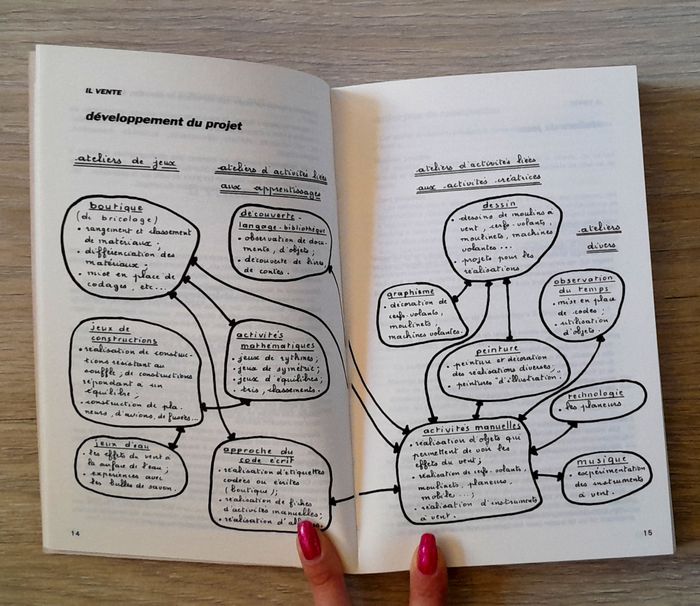 IL VENTE
développement du projet
ateliers de jeux
ateliers d'activités liées
aux apprentissages
boutique
(de bricolage)
• rangement et classement
de matériaux ;
• différenciation des
matériaux ;
• mise en place de
codages, etc...
découverte-
langage-bibliothèque
• observation de docu-
ments, d'objets ;
• découverte de livres,
de contes.
jeux de
constructions
• réalisation de construc-
tions résistant au
souffle, de constructions
répondant à un
équilibre ;
• construction de pla-
neurs, d'avions, de fusées...
activités
mathématiques
• jeux de rythmes ;
• jeux de symétrie ;
• jeux d'équilibres ;
• tris, classements.
jeux d'eau
• les effets du vent à
la surface de l'eau ;
• expériences avec
les bulles de savon.
approche du
code écrit
• réalisation d'étiquettes
codées ou écrites
(boutique) ;
• réalisation de fiches
d'activités manuelles ;
• réalisation
14
ateliers d'activités liées
aux activités créatrices
ateliers
divers
dessin
• dessins de moulins à
vent, cerfs-volants,
moulinets, machines
volantes...
• projets pour les
réalisations
graphisme
• décoration de
cerfs-volants,
moulinets,
machines volantes.
observation
du temps
• mise en place
de codes ;
• utilisation
d'objets.
peinture
• peinture et décoration
des réalisations diverses ;
• peintures "d'illustration".
technologie
• les planeurs
activités manuelles
• réalisation d'objets qui
permettent de voir les
effets du vent ;
• réalisation de cerfs-volants,
moulinets, planeurs,
mobile .... ;
• réalisation d'instruments
à vent.
musique
• expérimentation
des instruments
à vent.
15